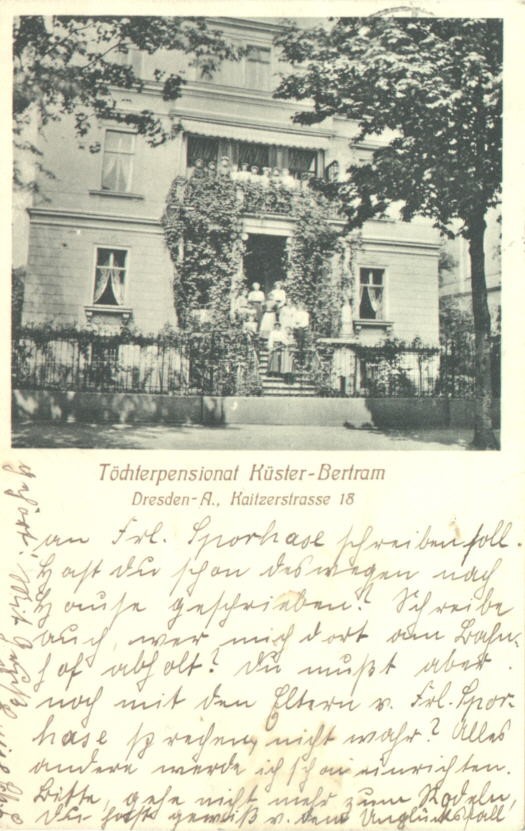 Töchterpensionat Küster-Bertram
Dresden-A., Kaitzerstrasse 18
an Frl. Sporhase schreiben soll.
Hast du schon deswegen nach
Hause geschrieben? Schreibe
auch, wer mich dort am Bahn-
hof abholt! Du mußt aber
noch mit den Eltern v. Frl. Spor-
hase sprechen, nicht wahr? Alles
andere werde ich schon einrichten.
Bitte, gehe nicht mehr zum Rodeln,
du hast gewiß v. dem Unglücksfall
gehört.